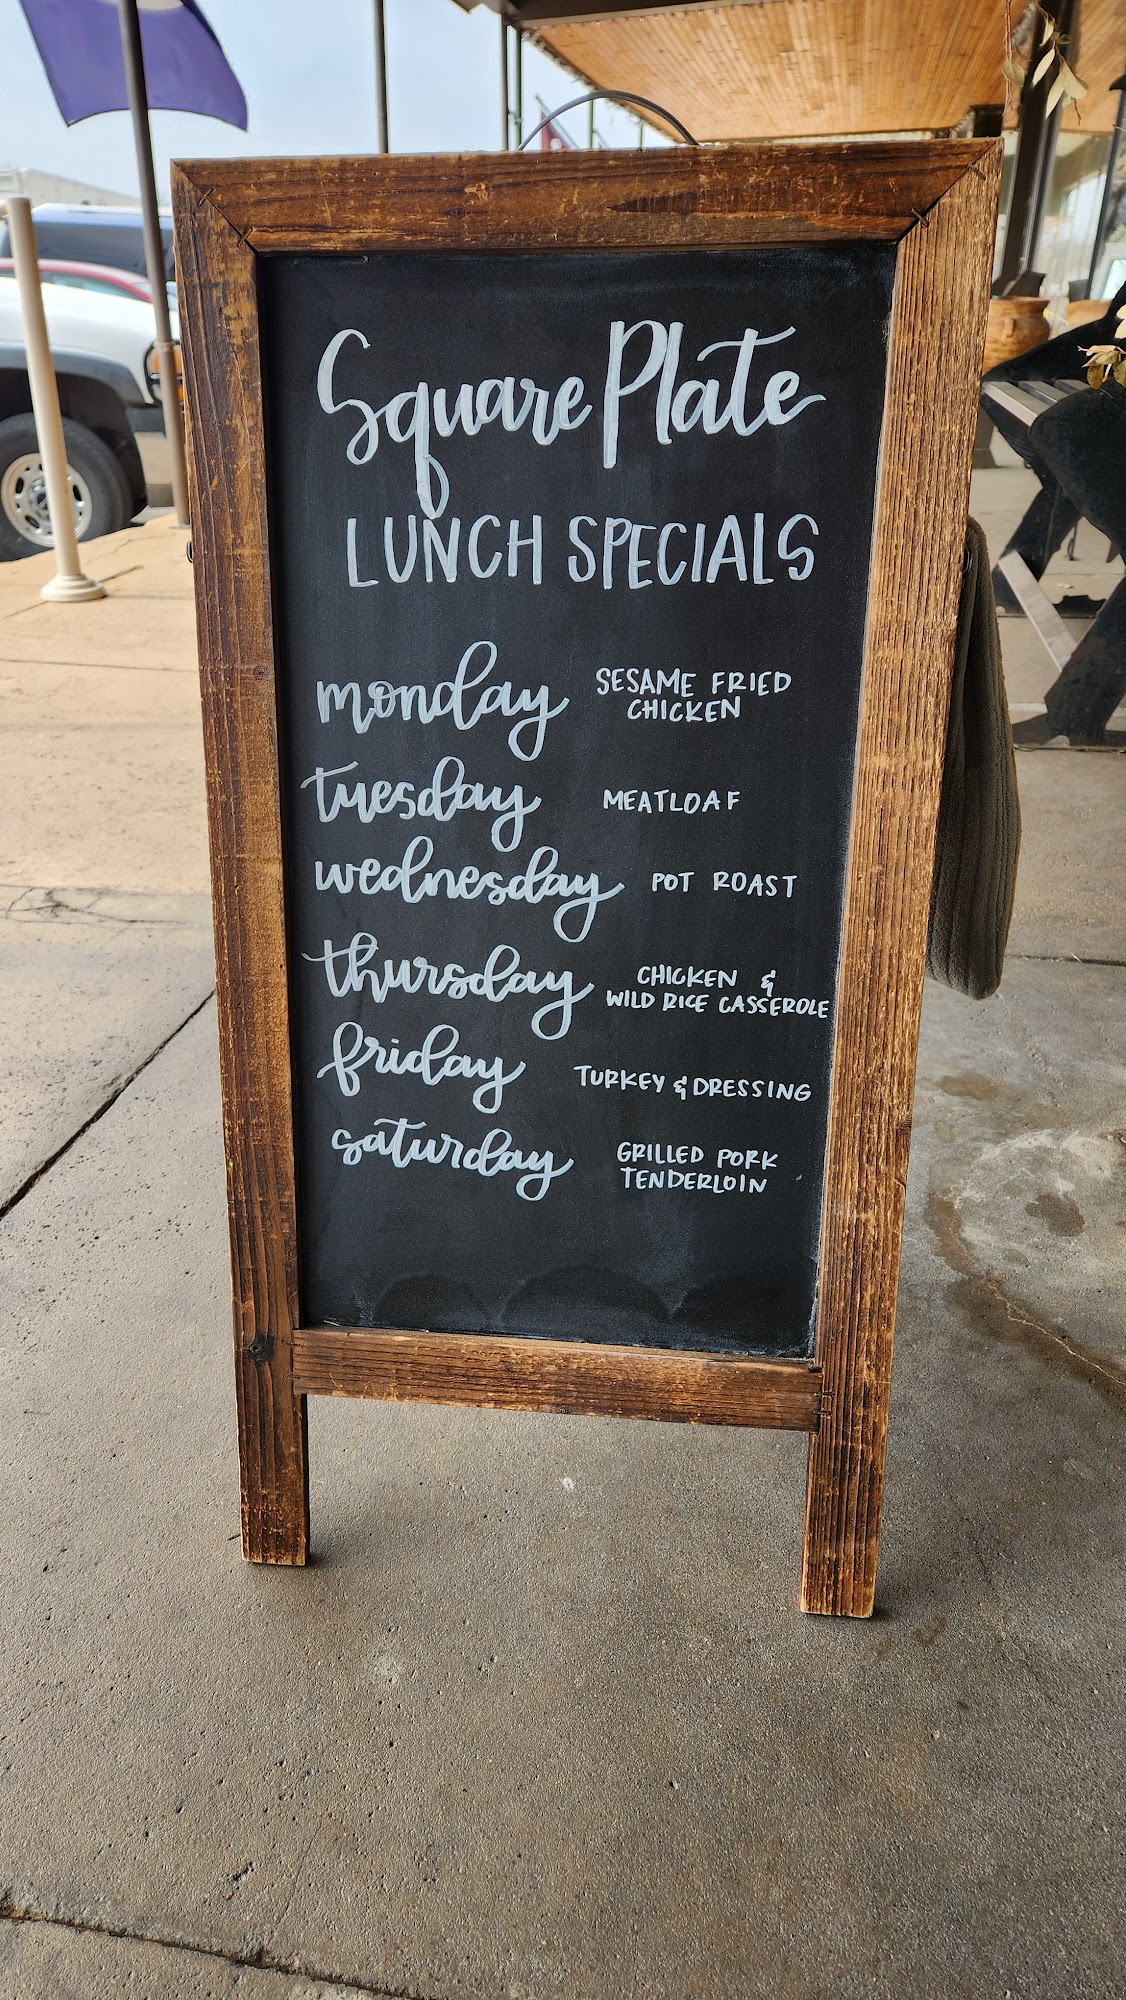 Square Plate
LUNCH SPECIALS
monday SESAME FRIED
CHICKEN
tuesday MEATLOAF
wednesday POT ROAST
thursday CHICKEN &
WILD RICE CASSEROLE
friday TURKEY & DRESSING
saturday GRILLED PORK
TENDERLOIN